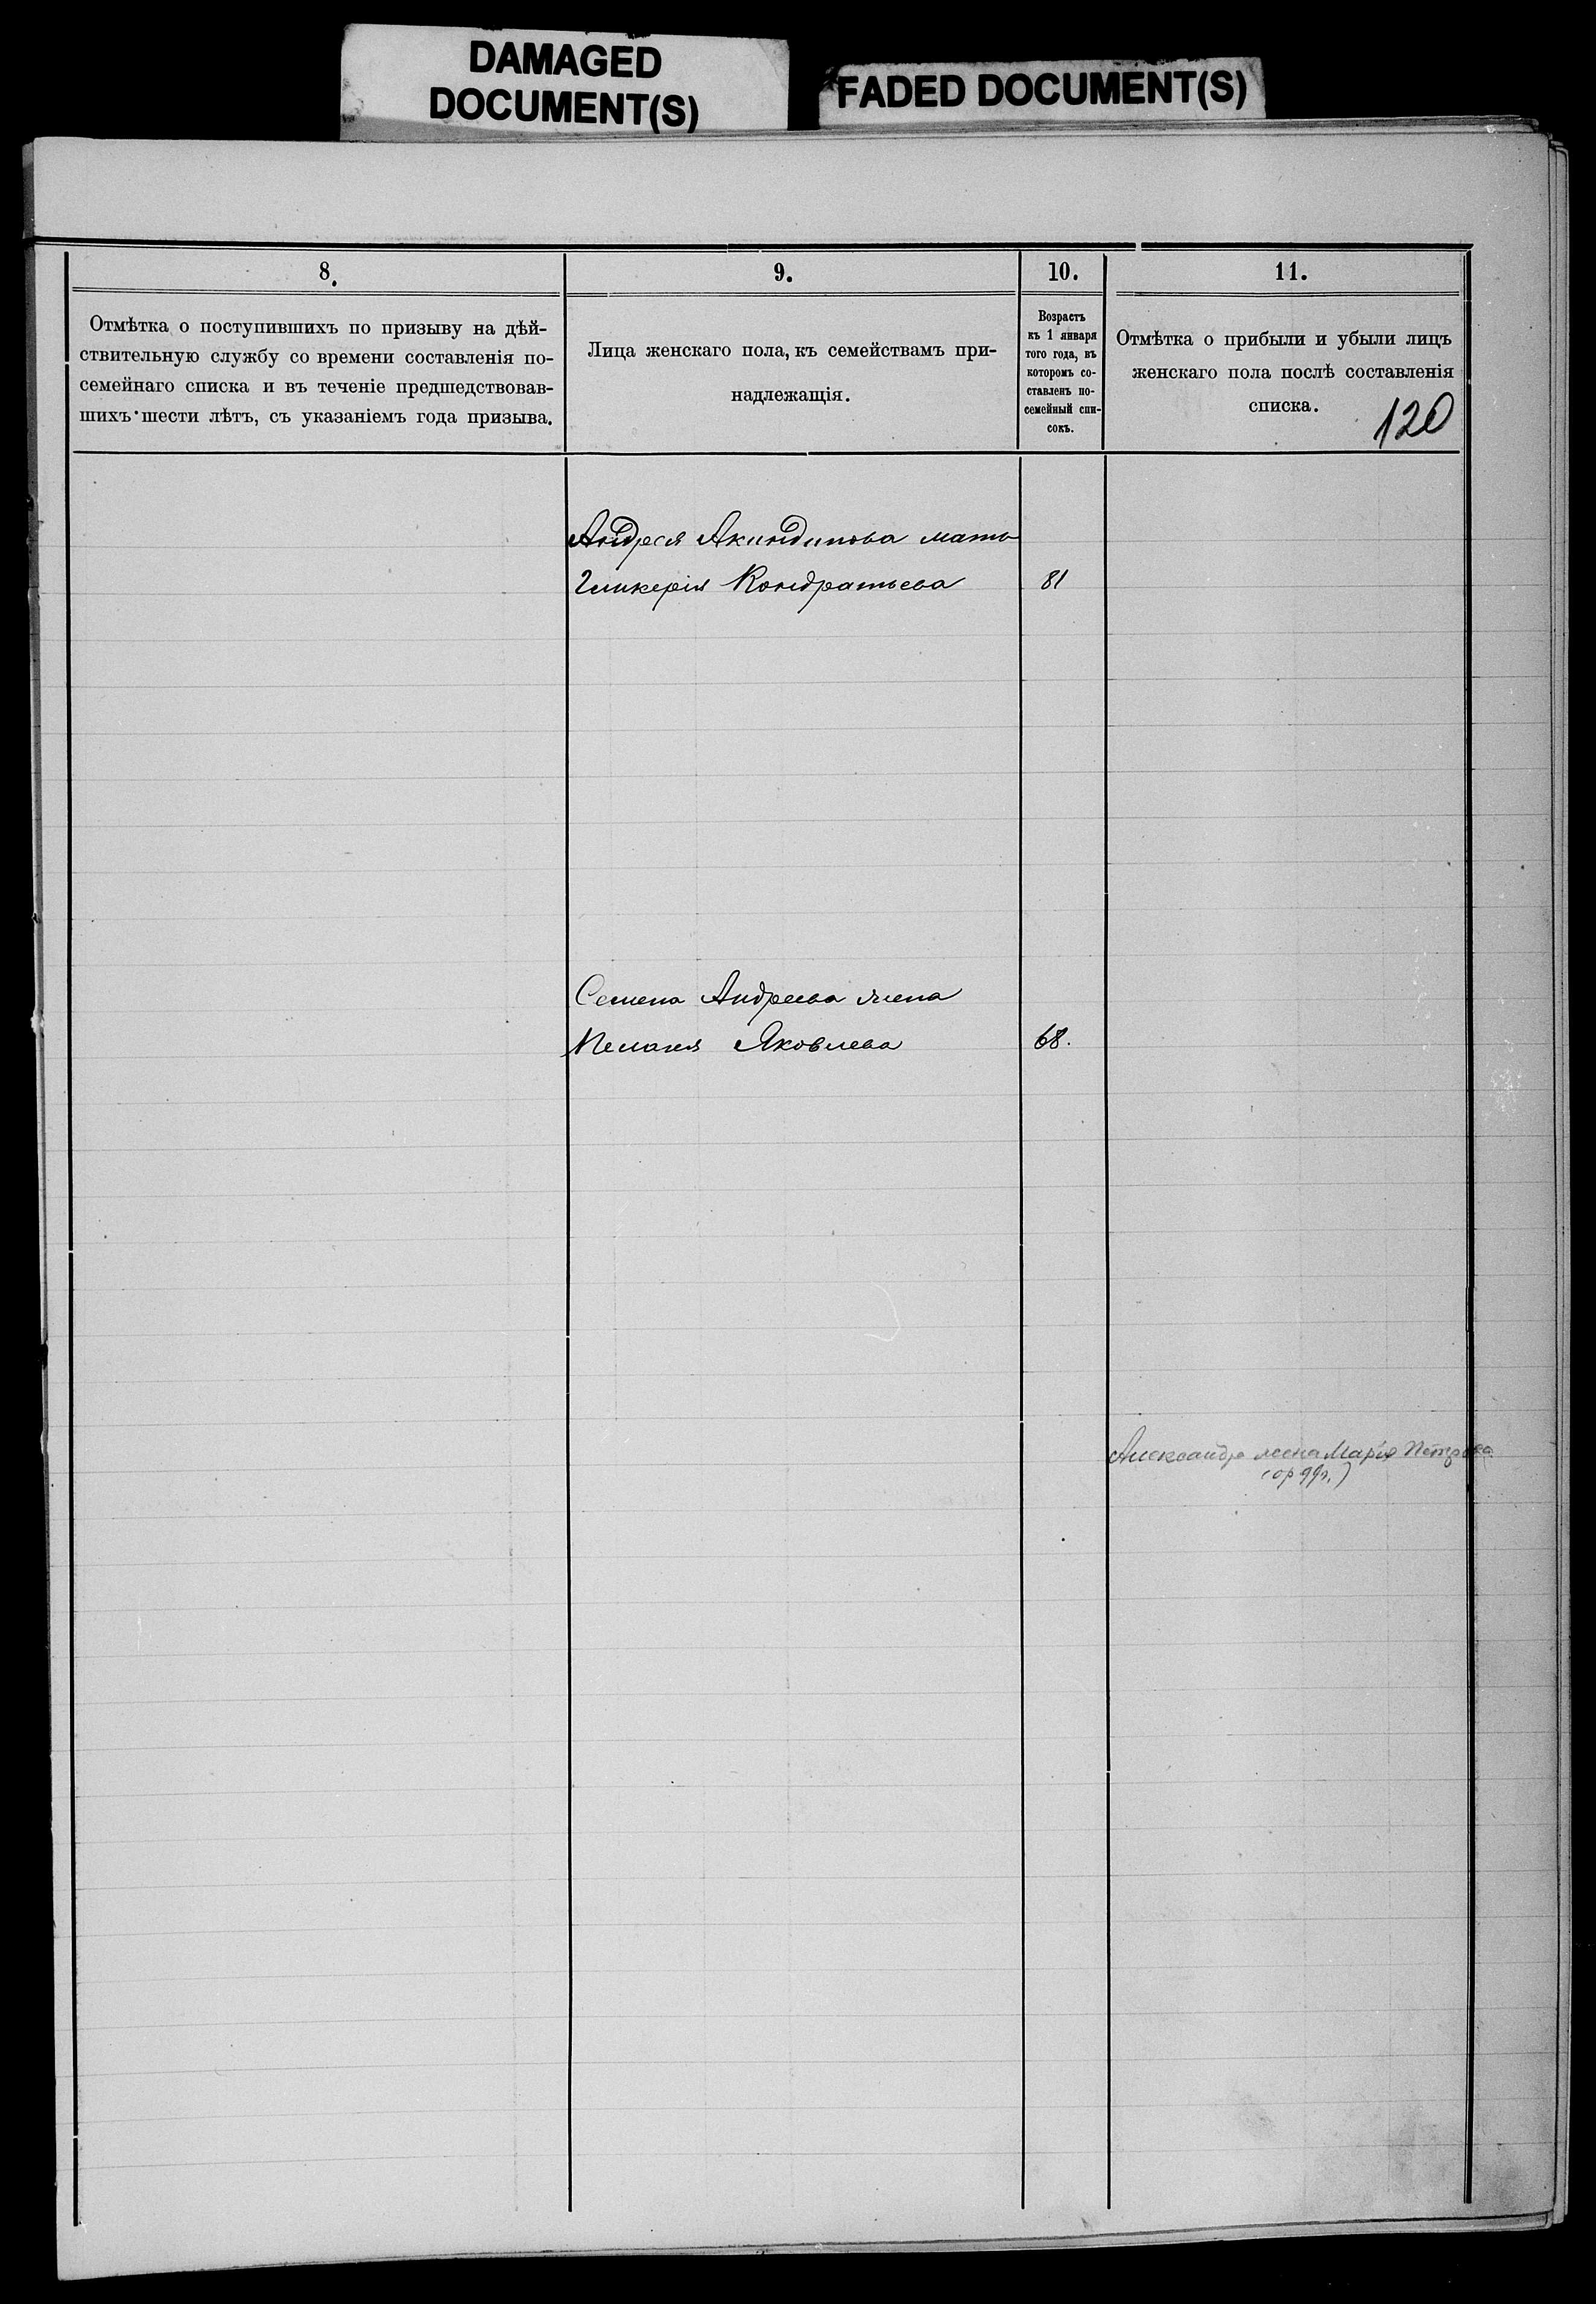 DAMAGED
DOCUMENT(S)
FADED DOCUMENT(S)
8.
Отмѣтка о поступившихъ по призыву на дѣй-
ствительную службу со времени составленія по-
семейнаго списка и въ теченіе предшедствовав-
шихъ шести лѣтъ, съ указаніемъ года призыва.
9.
Лица женскаго пола, къ семействамъ при-
надлежащія.
10.
Возрастъ
къ 1 января
того года, въ
которомъ со-
ставленъ по-
семейный спи-
сокъ.
11.
Отмѣтка о прибыли и убыли лицъ
женскаго пола послѣ составленія
списка.
120
Андрея Акиндинова мать
Гликерія Кондратьева 81
Семена Андреева жена
Пелагея Яковлева 68.
Александра жена Марія Петрова